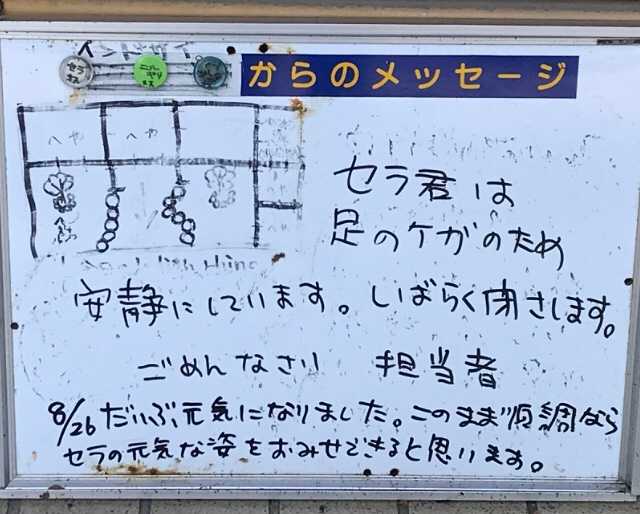 からのメッセージ
セラ
オス
へや
へや
セラ君は
足のケガのため
安静にしています。しばらく閉さします。
ごめんなさい 担当者
8/26 だいぶ元気になりました。このまま順調なら
セラの元気な姿をおみせできると思います。